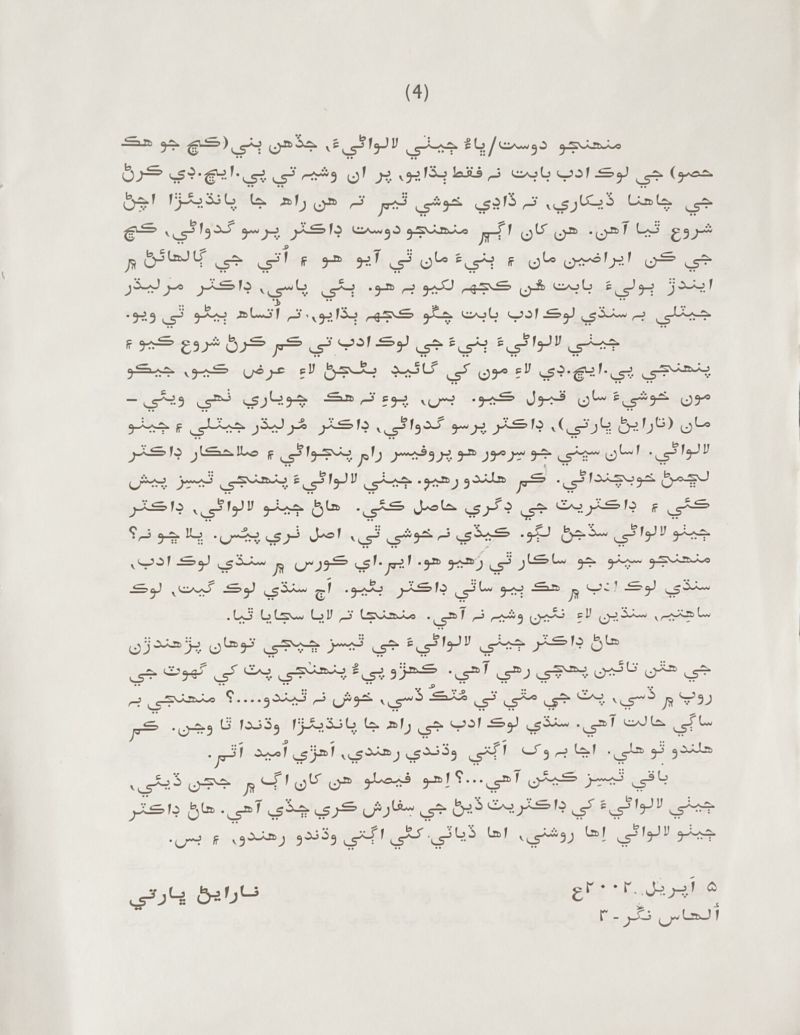 (4)
منهنجو دوست/ڀاءُ ڄيٺي لالواڻيءَ، جڏهن ٻني (ڪڇ جو هڪ
حصو) جي لوڪ ادب بابت نہ فقط ٻڌايو، پر ان وشيہ تي پي.ايڇ.ڊي ڪرڻ
جي چاهنا ڏيکاري، تہ ڏاڍي خوشي ٿيم تہ هن راهہ جا پانڌيئڙا اچڻ
شروع ٿيا آهن. هن کان اڳ ۾ منهنجو دوست ڊاڪٽر پرسو گدواڻي، ڪڇ
جي ڪن ايراضين مان ۽ ٻنيءَ مان ٿي آيو هو ۽ اُتي جي ڳالهائڻ ۾
ايندڙ ٻوليءَ بابت هُن ڪجهہ لکيو بہ هو. ٻئي پاسي، ڊاڪٽر مرليڌر
جيٽلي بہ سنڌي لوڪ ادب بابت چڱو ڪجهہ ٻڌايو، تہ اُتساهہ ٻيڻو ٿي ويو.
ڄيٺي لالواڻيءَ ٻنيءَ جي لوڪ ادب تي ڪم ڪرڻ شروع ڪيو ۽
پنهنجي پي.ايڇ.ڊي لاءِ مون کي گائيڊ بڻجڻ لاءِ عرض ڪيو، جيڪو
مون خوشيءَ سان قبول ڪيو. بس، پوءِ تہ هڪ چوياري ٺهي ويئي –
مان (نارايڻ ڀارتي)، ڊاڪٽر پرسو گدواڻي، ڊاڪٽر مُرليڌر جيٽلي ۽ ڄيٺو
لالواڻي. اسان سڀني جو سِرمور هو پروفيسر رام پنجواڻي ۽ صلاحڪار ڊاڪٽر
لڇمڻ خوبچنداڻي. ڪم هلندو رهيو. ڄيٺي لالواڻيءَ پنهنجي ٿيسز پيش
ڪئي ۽ ڊاڪٽريٽ جي ڊگري حاصل ڪئي. هاڻ ڄيٺو لالواڻي، ڊاڪٽر
ڄيٺو لالواڻي سڏجڻ لڳو. ڪيڏي نہ خوشي ٿي، اصل ٺري پيُس. ڀلا ڇو نہ؟
منهنجو سپنو جو ساڪار ٿي رهيو هو. ايم.اي ڪورس ۾ سنڌي لوڪ ادب،
سنڌي لوڪ ادب ۾ هڪ ٻيو ساٿي ڊاڪٽر بڻيو. اڄ سنڌي لوڪ گيت، لوڪ
ساهتيہ، سنڌين لاءِ نئين وشيہ نہ آهي. منهنجا تہ لايا سجايا ٿيا.
هاڻ ڊاڪٽر ڄيٺي لالواڻيءَ جي ٿيسز ڇپجي توهان پڙهندڙن
جي هٿن تائين پهچي رهي آهي. ڪهڙو پيءُ پنهنجي پٽ کي گهوٽ جي
روپ ۾ ڏسي، پٽ جي مٿي تي مُٽڪُ ڏسي، خوش نہ ٿيندو....؟ منهنجي بہ
ساڳي حالت آهي. سنڌي لوڪ ادب جي راهہ جا پانڌيئڙا وڌندا ٿا وڃن. ڪم
هلندو ٿو هلي. اڃا بہ وک اڳتي وڌندي رهندي، اهڙي اُميد اٿم.
باقي ٿيسز ڪيئن آهي...؟ اِهو فيصلو هن کان اڳ ۾ ججن ڏيئي،
ڄيٺي لالواڻيءَ کي ڊاڪٽريٽ ڏيڻ جي سفارش ڪري ڇڏي آهي. هاڻ ڊاڪٽر
ڄيٺو لالواڻي اِها روشني، اها ڏياٽي کڻي اڳتي وڌندو رهندو، ۽ بس.
۵ اَپريل ۲۰۰۲ع
نارايڻ ڀارتي
اُلهاس نگر-۳